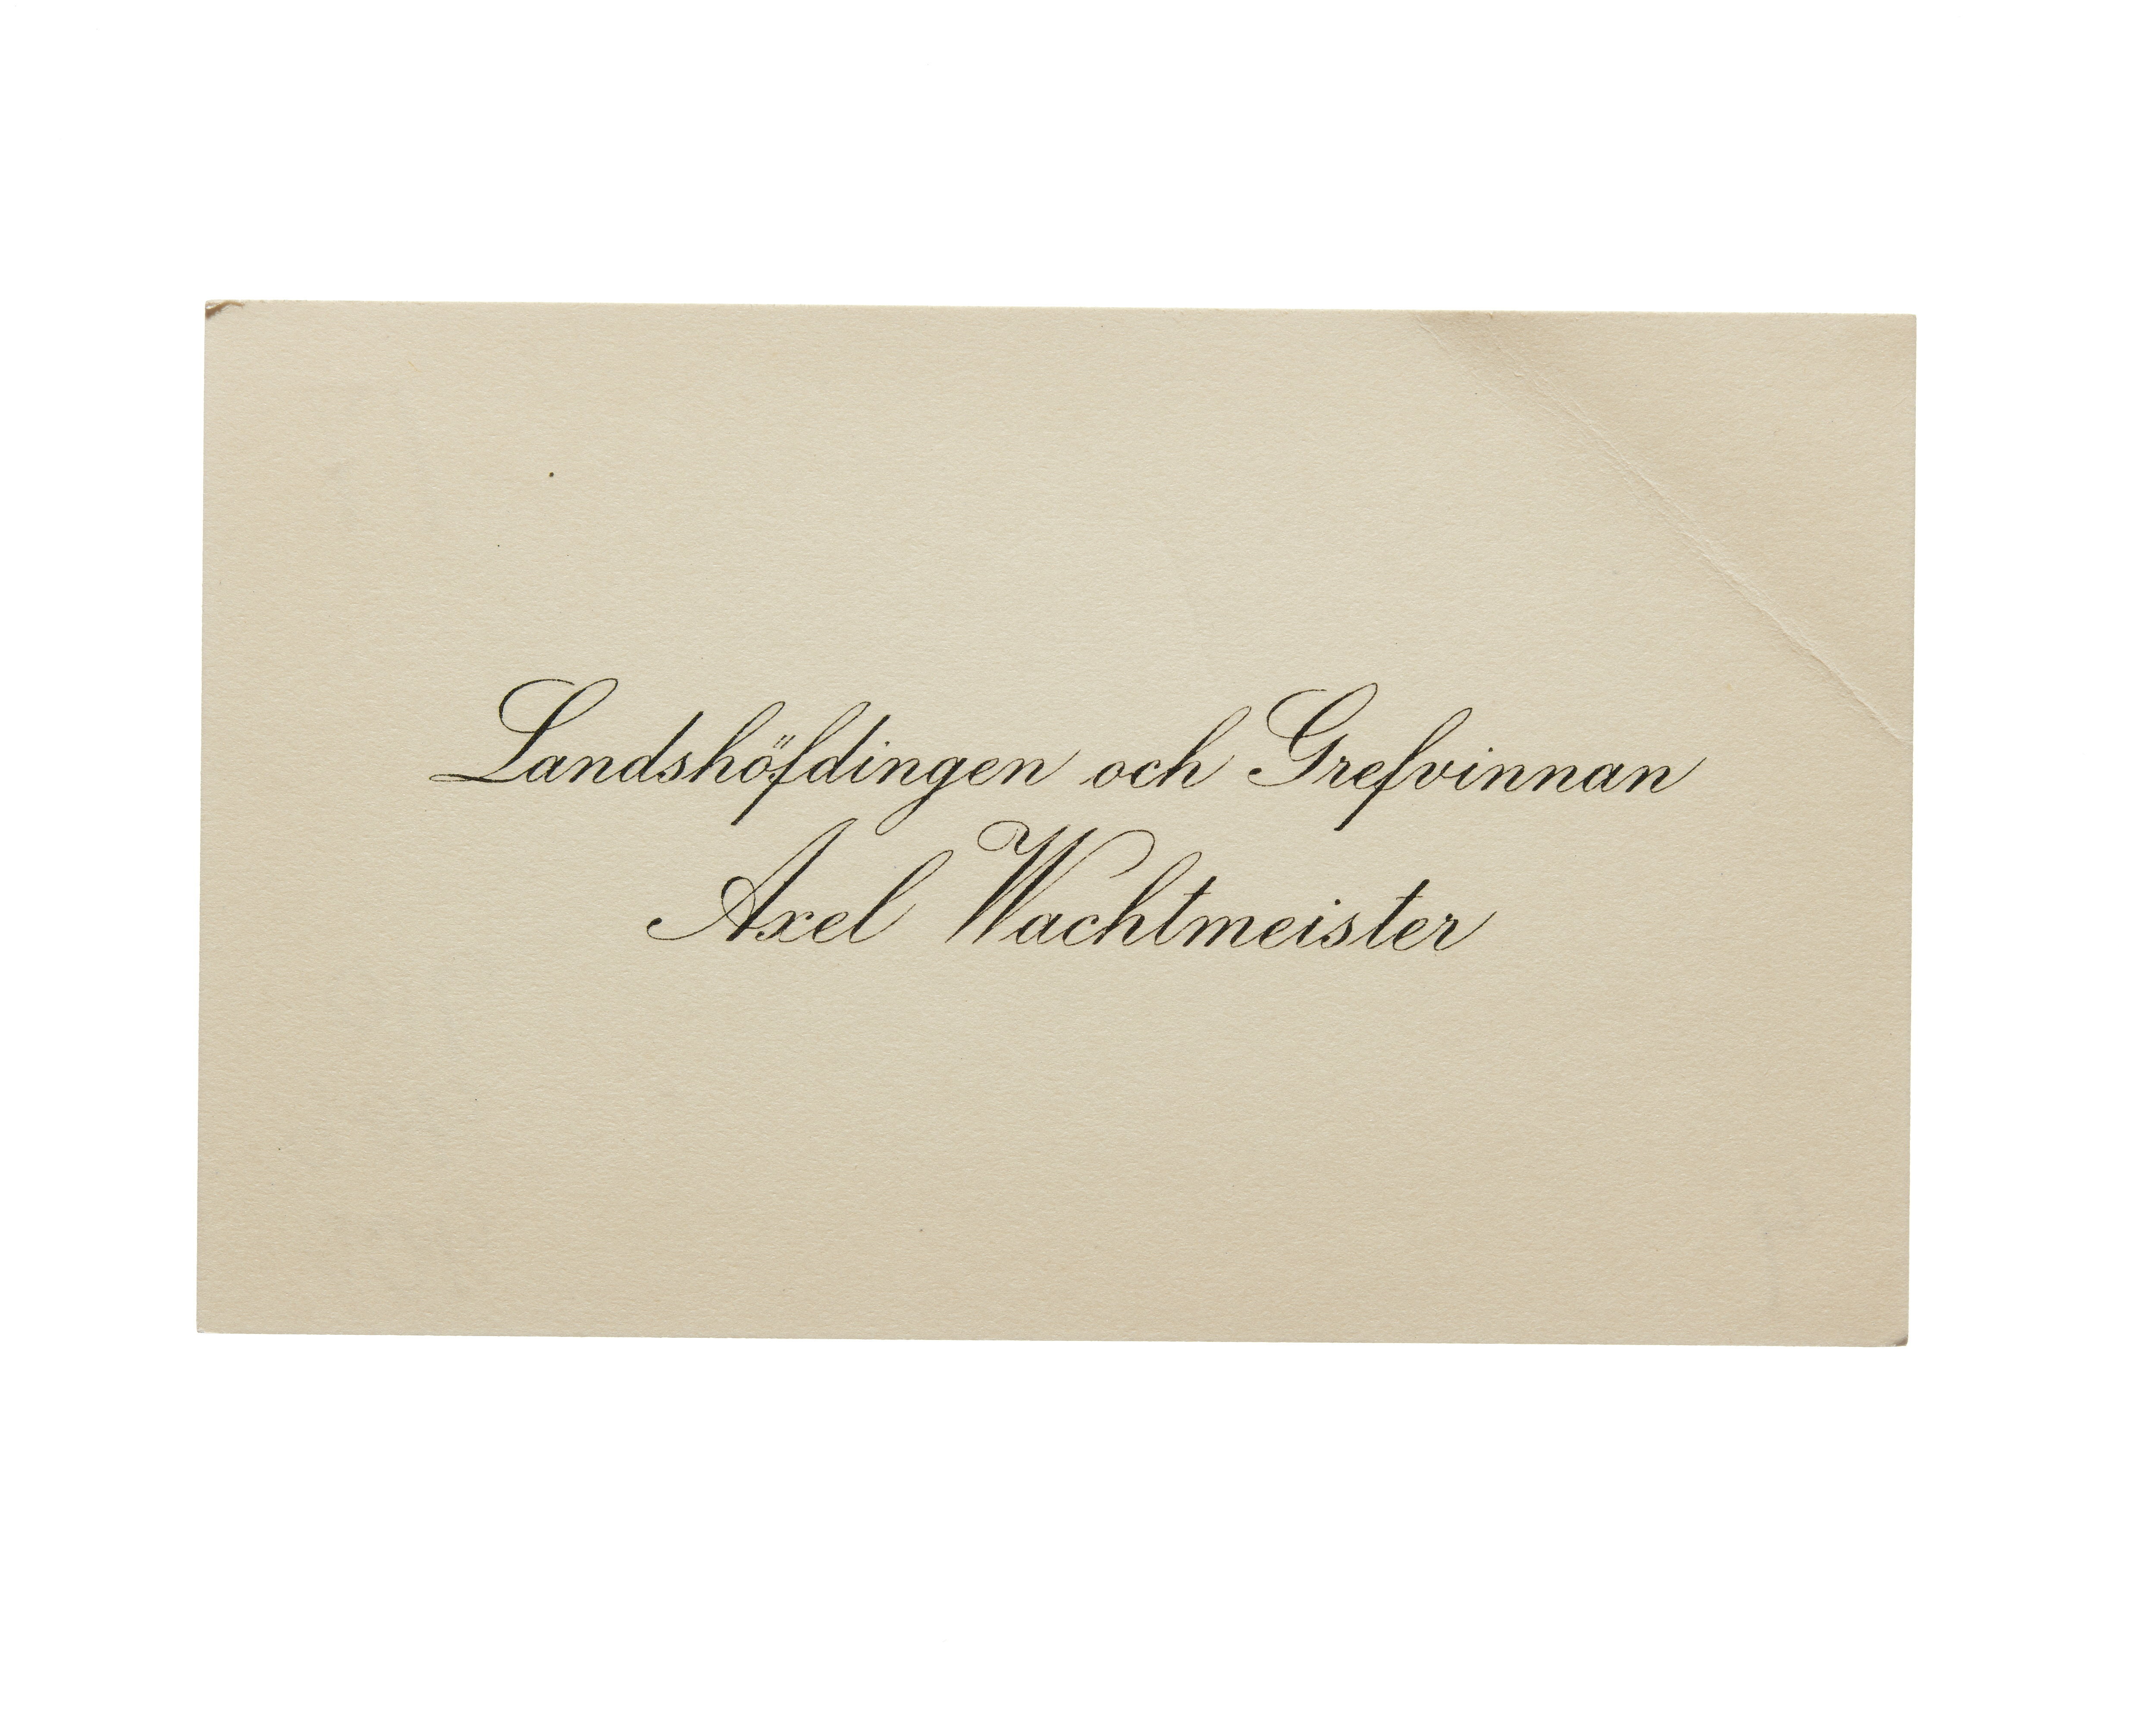 Landshöfdingen och Grefvinnan
Axel Wachtmeister